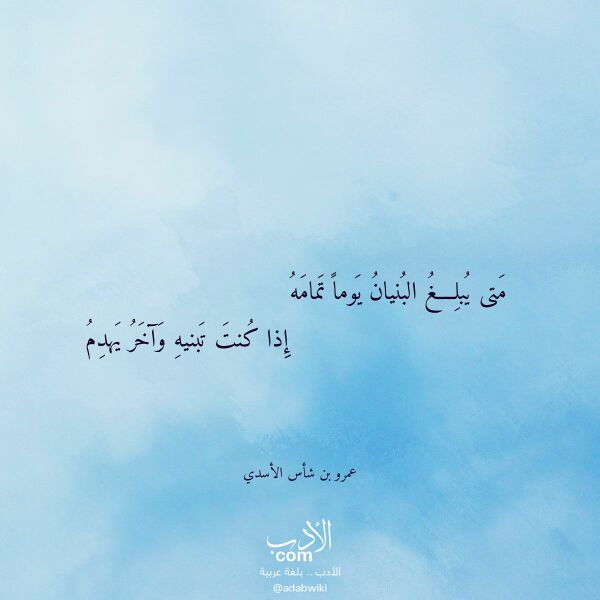 مَتى يُبلِـــغُ البُنيانُ يَوماً تَمامَهُ
إِذا كُنتَ تَبنيهِ وَآخَرُ يَهدِمُ
عمرو بن شأس الأسدي
الأدب
com
الأدب .. بلغة عربية
@adabwiki